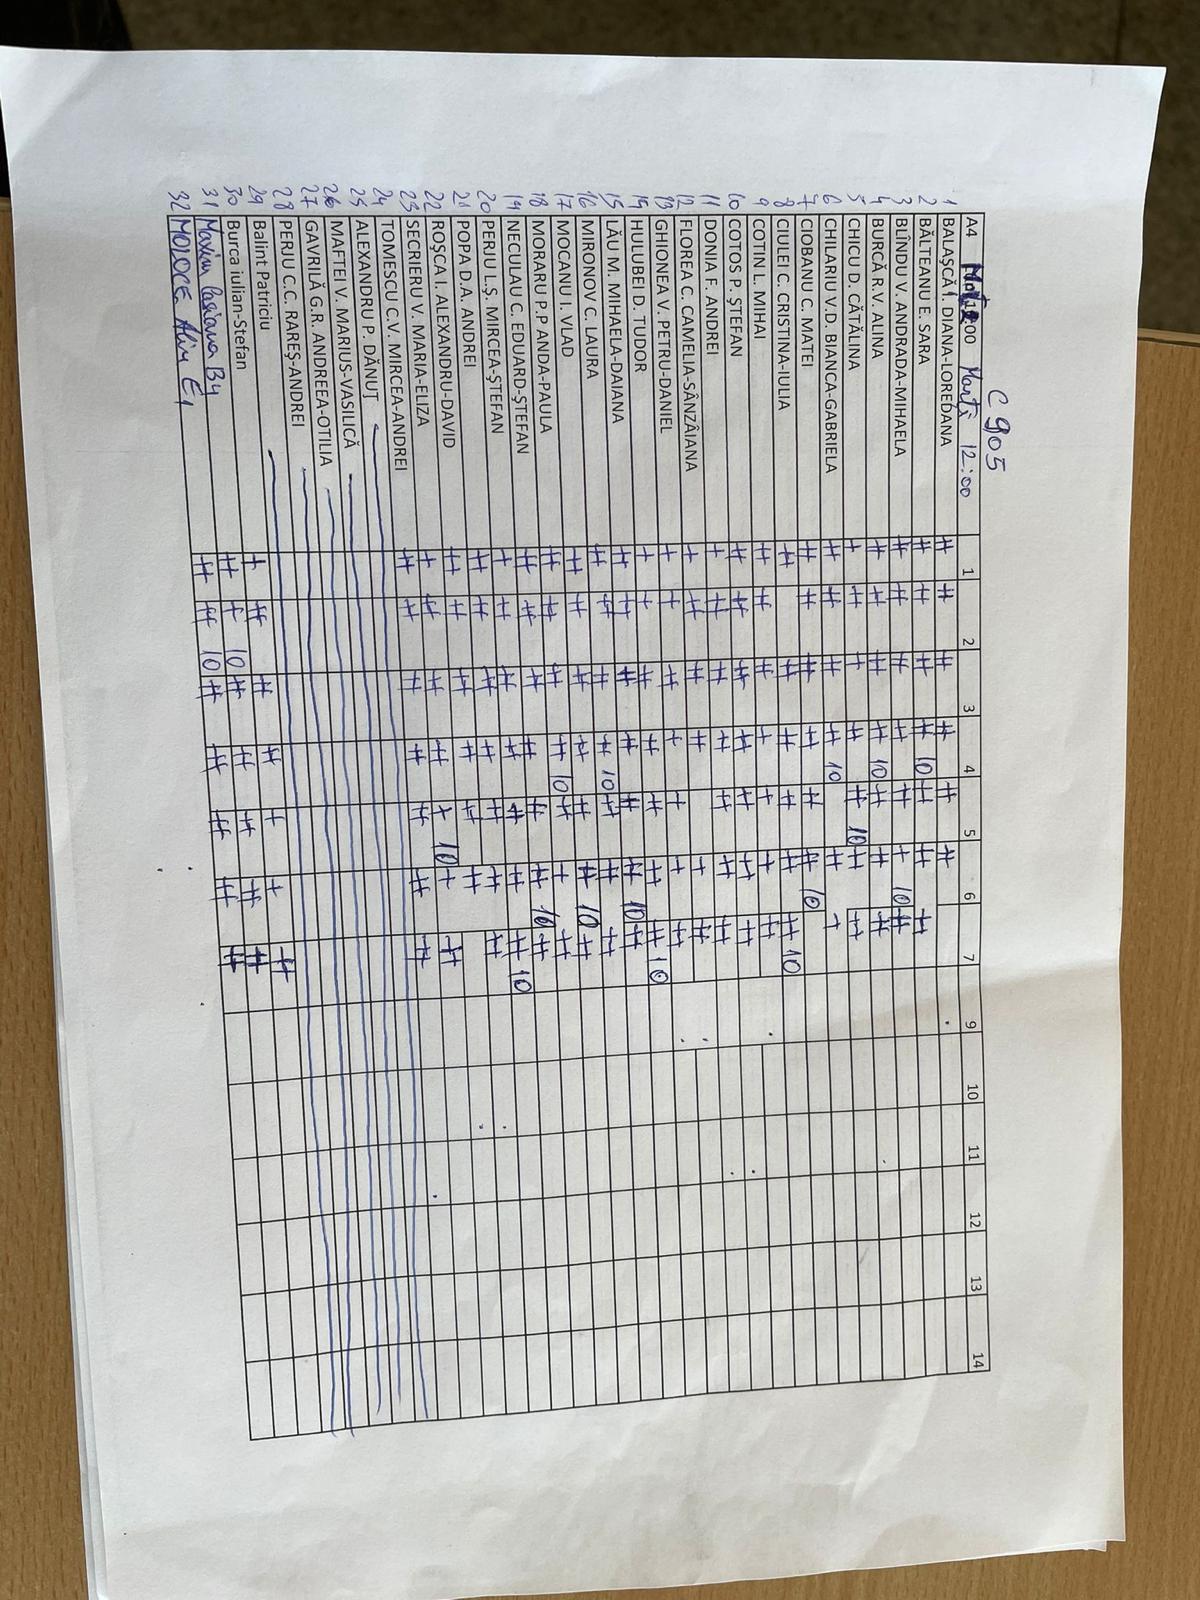 C 905
A4 00 Marți 12:00 1 2 3 4 5 6 7 9 10 11 12 13 14
1 BALAŞCĂ I. DIANA-LOREDANA # # # # # #
2 BĂLTEANU E. SARA # # # # 10 # # #
3 BLÎNDU V. ANDRADA-MIHAELA # # # # # + 10 #
4 BURCĂ R.V. ALINA # # # # 10 # # #
5 CHICU D. CĂTĂLINA + # + # # 10 # #
6 CHILARIU V.D. BIANCA-GABRIELA # # # # 10 # +
7 CIOBANU C. MATEI # # # # # # 10
8 CIULEI C. CRISTINA-IULIA # # # # # # 10
9 COTIN L. MIHAI # # # + + + #
10 COTOS P. ŞTEFAN # # # # # # #
11 DONIA F. ANDREI + # # # # # #
12 FLOREA C. CAMELIA-SÂNZÂIANA + # # # + #
13 GHIONEA V. PETRU-DANIEL + + # + + + #
14 HULUBEI D. TUDOR + + # # # # # 10
15 LĂU M. MIHAELA-DAIANA + # # # # # 10 #
16 MIRONOV C. LAURA # # # # 10 # # #
17 MOCANU I. VLAD # # # # # # 10 #
18 MORARU P.P ANDA-PAULA # # # # 10 # + #
19 NECULAU C. EDUARD-ŞTEFAN # # # # # # 10 #
20 PERJU L.Ş. MIRCEA-ŞTEFAN + # # # # # # 10
21 POPA D.A. ANDREI # # # # # # #
22 ROŞCA I. ALEXANDRU-DAVID # # # # # #
23 SECRIERU V. MARIA-ELIZA + # # # + 10 + #
24 TOMESCU C.V. MIRCEA-ANDREI # # # # # # #
25 ALEXANDRU P. DĂNUŢ
26 MAFTEI V. MARIUS-VASILICĂ
27 GAVRILĂ G.R. ANDREEA-OTILIA
28 PERJU C.C. RAREŞ-ANDREI
29 Balint Patriciu
30 Burca iulian-Stefan + # # # + + #
31 Maxim Casiana B4 # + 10 # # # # #
32 MOLOCE Alin E1 # # 10 # # # # #